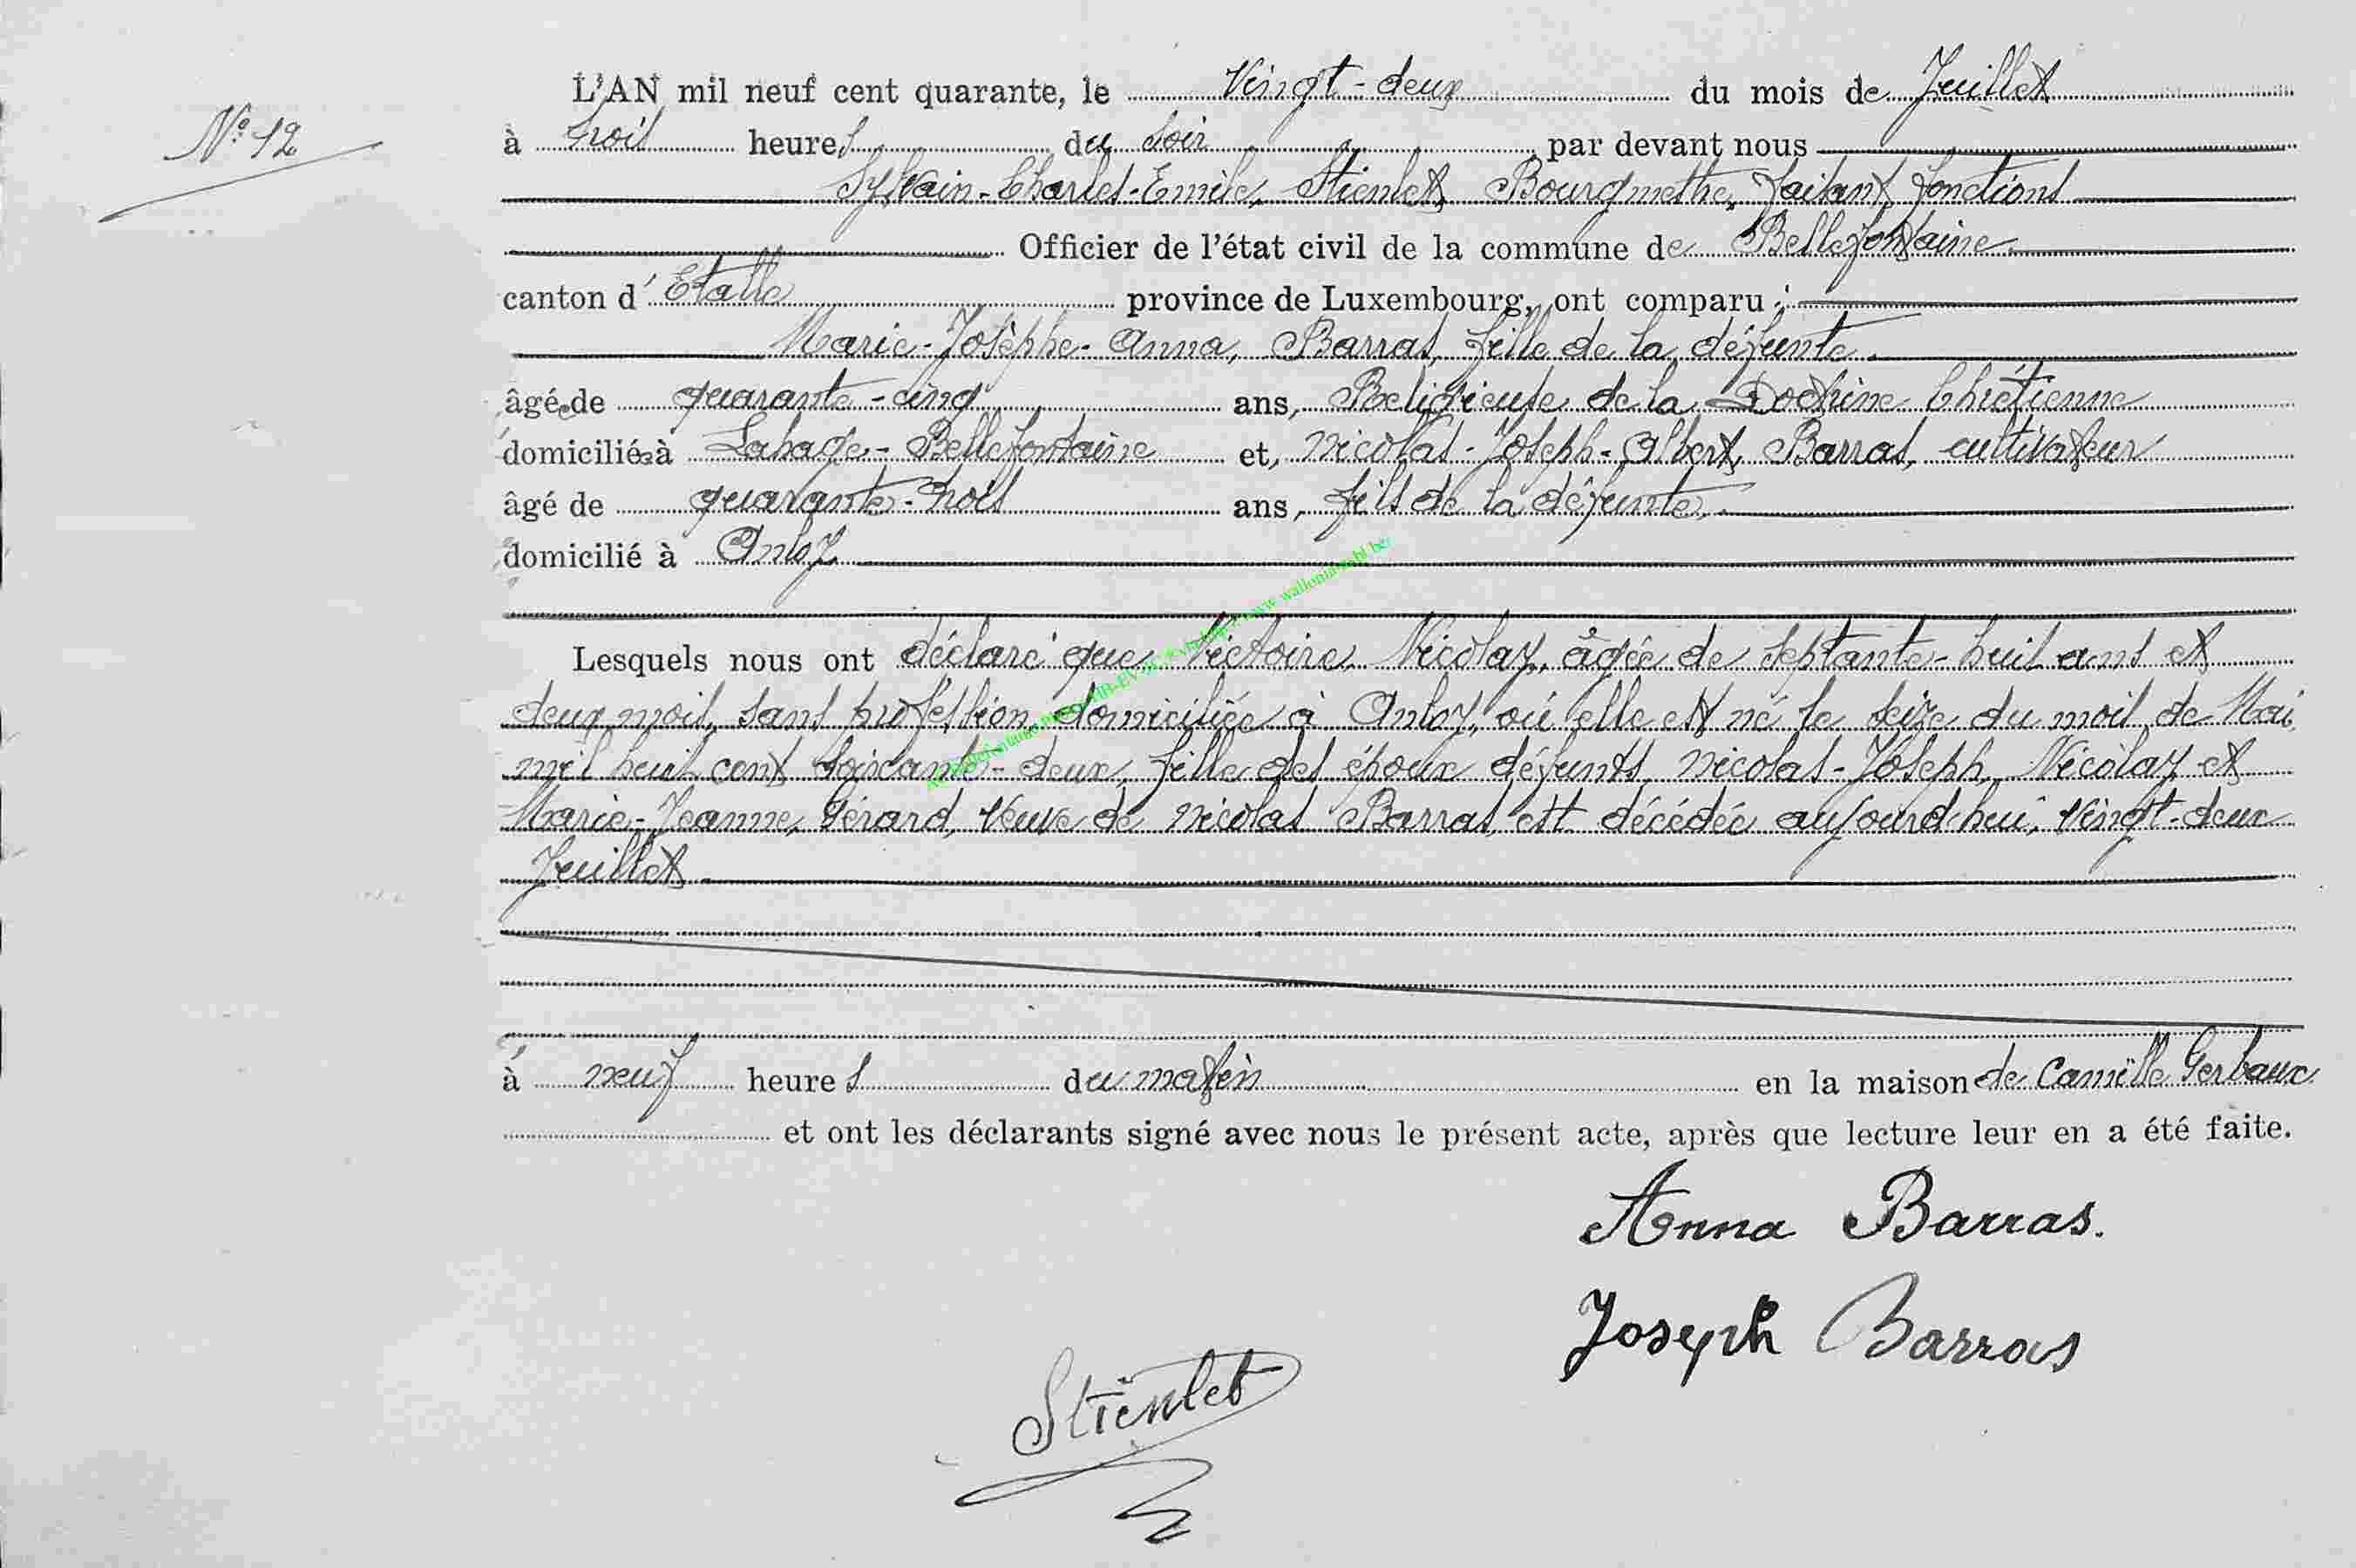 N° 12
L'AN mil neuf cent quarante, le Vingt-deux du mois de Juillet
à trois heures du soir par devant nous
Sylvain-Charles-Emile, Stienlet, Bourgmestre, faisant fonctions
Officier de l'état civil de la commune de Bellefontaine
canton d'Etalle province de Luxembourg, ont comparu :
Marie-Josèphe-Anna, Barras, fille de la défunte.
âgée de quarante-cinq ans, Religieuse de la Doctrine Chrétienne
domiciliée à Lahage-Bellefontaine et, Nicolas-Joseph-Albert, Barras, cultivateur
âgé de quarante-trois ans, fils de la défunte.
domicilié à Anloy
Lesquels nous ont déclaré que Victoire, Nicolay, âgée de septante-huit ans et
deux mois, sans profession, domiciliée à Anloy, où elle est né le seize du mois de Mai
mil huit cent soixante-deux, fille des époux défunts, Nicolas-Joseph, Nicolay et
Marie-Jeanne, Gérard, veuve de Nicolas Barras, est décédée aujourd'hui, vingt-deux
Juillet.
à neuf heures du matin en la maison de Camille Gerbaux
et ont les déclarants signé avec nous le présent acte, après que lecture leur en a été faite.
Anna Barras.
Joseph Barras
Stienlet